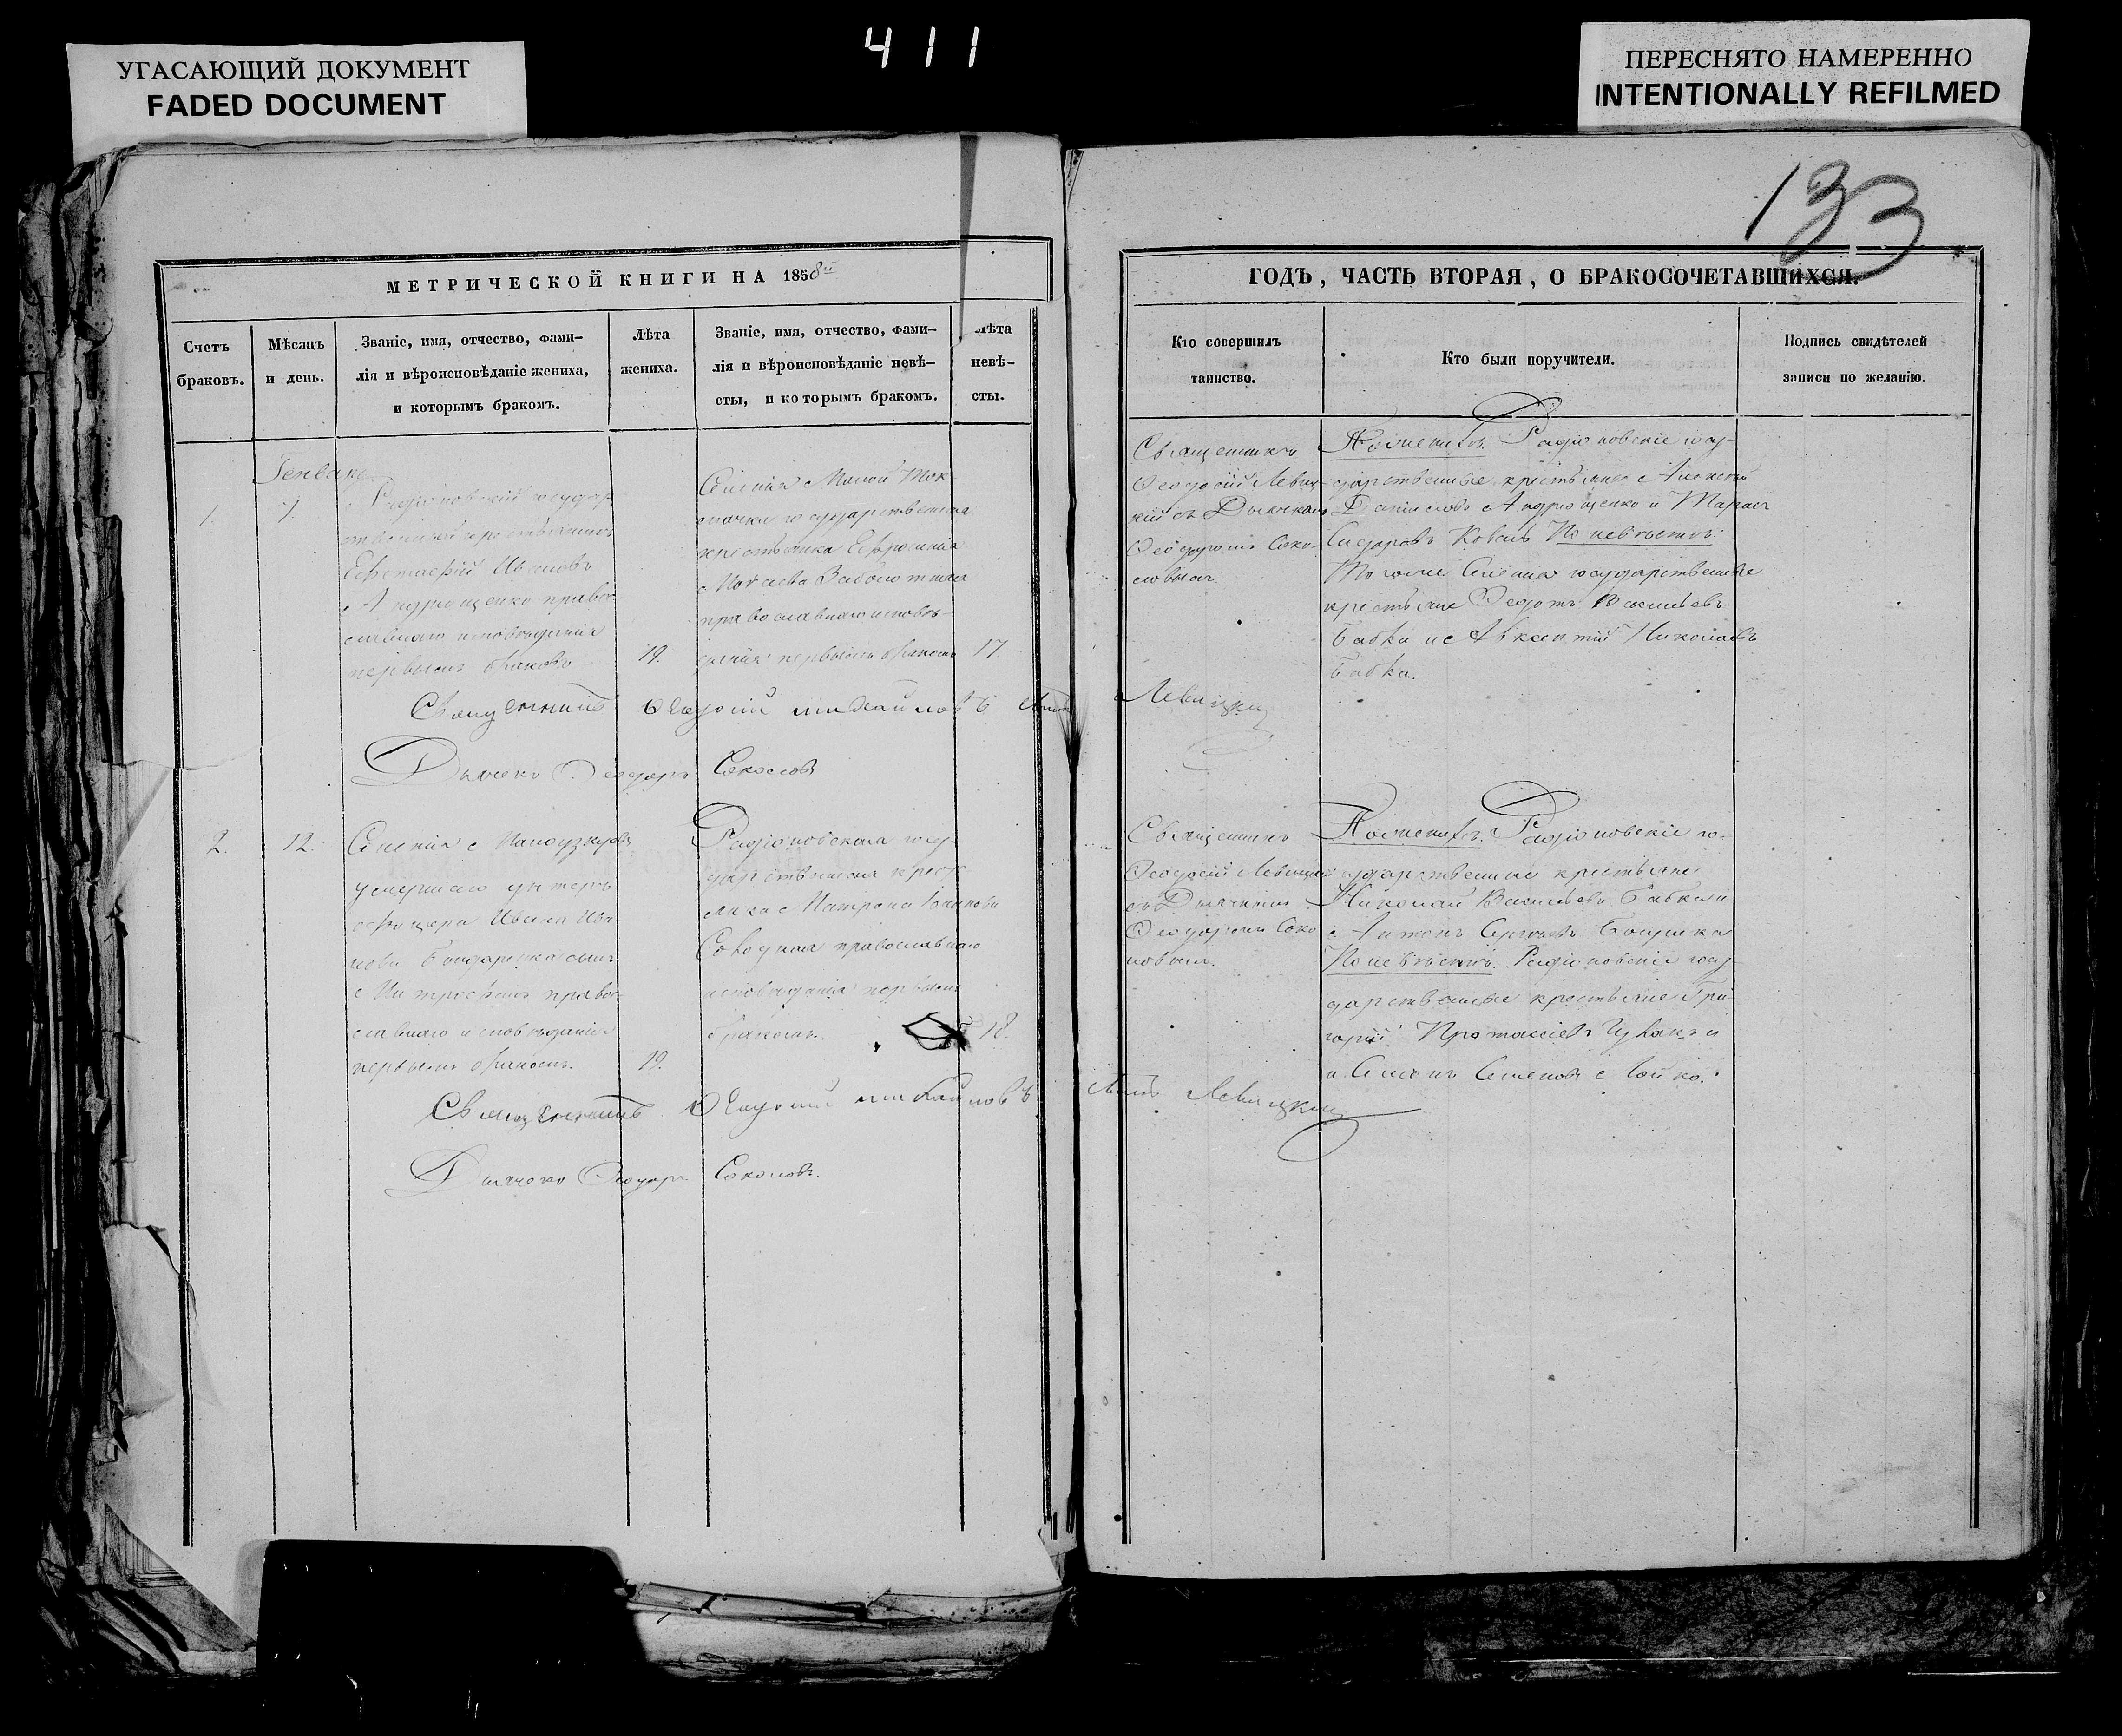 УГАСАЮЩИЙ ДОКУМЕНТ
FADED DOCUMENT
411
ПЕРЕСНЯТО НАМЕРЕННО
INTENTIONALLY REFILMED
133
МЕТРИЧЕСКОЙ КНИГИ НА 1858й
Счетъ
браковъ.
Мѣсяцъ
и день.
Званіе, имя, отчество, фами–
лія и вѣроисповѣданіе жениха,
и которымъ бракомъ.
Лѣта
жениха.
Званіе, имя, отчество, фами–
лія и вѣроисповѣданіе невѣ–
сты, и которымъ бракомъ.
Лѣта
невѣ–
сты.
Генваря
1.
7.
Радіоновскій государ
ственный крестьянинъ
Евстафій Ивановъ
Андрющенко право
славнаго исповѣданія
первымъ бракомъ
19.
Селенія Малой
государственная
крестьянка Ефросинія
православнаго исповѣ–
данія первымъ бракомъ
17
Священникъ Ѳеодосій Михайловъ Левицкій
Дьячекъ Ѳеодоръ Соколовъ
2.
12.
Селенія
умершаго унтеръ
офицера Ивана Ива
нова Бондаренка сынъ
Митрофанъ право
славнаго исповѣданія
первымъ бракомъ.
19.
Радіоновская госу
дарственная кресть
янка Матрона
православнаго
исповѣданія первымъ
бракомъ.
18.
Священникъ Ѳеодосій Михайловъ Левицкій
Дьячекъ Ѳеодоръ Соколовъ.
ГОДЪ, ЧАСТЬ ВТОРАЯ, О БРАКОСОЧЕТАВШИХСЯ.
Кто совершилъ
таинство.
Кто были поручители.
Подпись свидѣтелей
записи по желанію.
Священникъ
Ѳеодосій Левиц–
кій съ Дьячкомъ
Ѳеодоромъ Соко–
ловымъ
По женихѣ. Радіоновскіе госу–
дарственные крестьяне Алексѣй
Даниловъ Андрющенко и Тарасъ
Сидоровъ Коваль По невѣстѣ:
Тогоже Селенія государственные
крестьяне Ѳедотъ Васильевъ
Бабка и Авксентій Николаевъ
Бабка.
Священникъ
Ѳеодосій Левицкій
съ Дьячкомъ
Ѳеодоромъ Соко
ловымъ.
По женихѣ. Радіоновскіе го–
сударственныи крестьяне
Николай Васильевъ Бабка и
Антонъ Сергѣевъ
По невѣстѣ. Радіоновскіе госу–
дарственные крестьяне Гри
горій Протасіевъ Чувакъ и
Семенъ Семеновъ